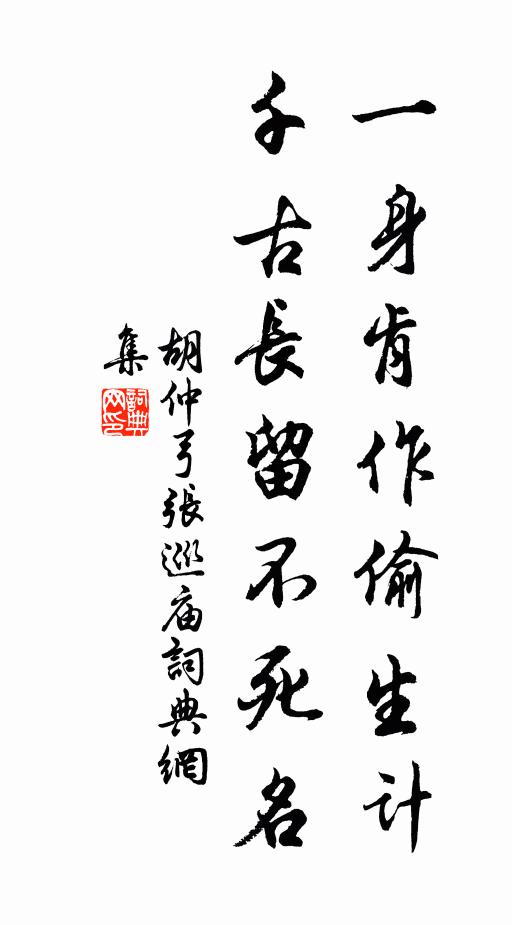 一身肯作偷生計
千古長留不死名
胡仲弓張巡庙詞典網
集
詞典網印